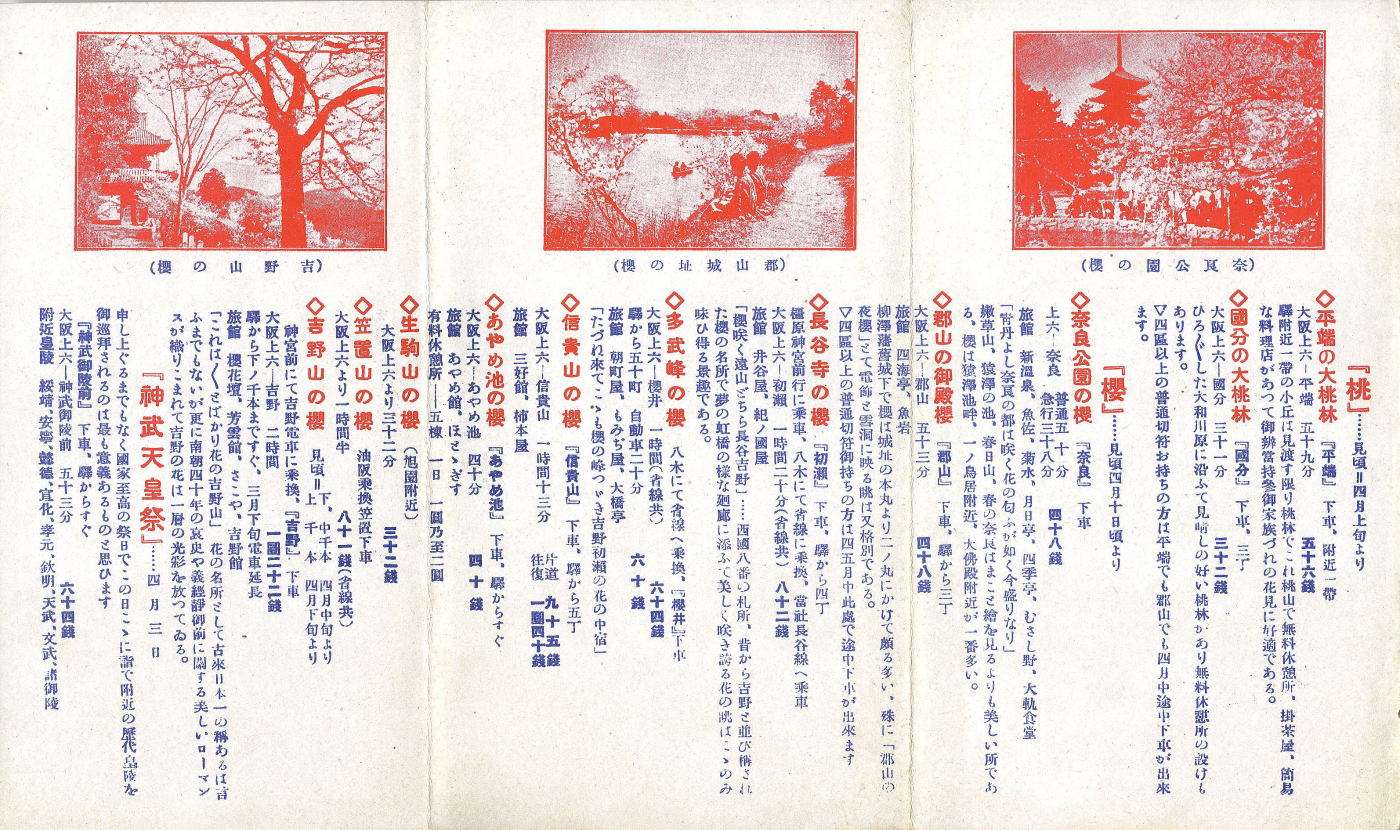 『桃』……見頃＝四月上旬より
◇平端の大桃林 『平端』 下車、附近一帶
大阪上六―平端 五十九分 五十六錢
驛附近一帶の小丘は見渡す限り桃林でこれ桃山で無料休憩所、掛茶屋、簡易
な料理店があつて御辨當持參御家族づれの花見に好適である。
◇國分の大桃林 『國分』 下車、三丁
大阪上六―國分 三十一分 三十二錢
ひろ〴〵した大和川原に沿ふて見晴しの好い桃林があり無料休憩所の設けも
あります。
▽四區以上の普通切符お持ちの方は平端でも郡山でも四月中途中下車が出來
ます。
『櫻』……見頃四月十日頃より
◇奈良公園の櫻 『奈良』 下車
上六―奈良 普通五十分 急行三十八分 四十八錢
旅館 新溫泉、魚佐、菊水、月日亭、四季亭、むさし野、大軌食堂
「靑丹よし奈良の都は咲く花の匂ふが如く今盛りなり」
嫩草山、猿澤の池、春日山、春の奈良はまこと繪を見るよりも美しい所であ
る、櫻は猿澤池畔、一ノ鳥居附近、大佛殿附近が一番多い。
◇郡山の御殿櫻 『郡山』 下車、驛から三丁
大阪上六―郡山 五十三分 四十八錢
旅館 四海亭、魚岩
柳澤藩舊城下で櫻は城址の本丸より二ノ丸にかけて頗る多い、殊に「郡山の
夜櫻」さて電飾と雪洞に映る眺は又格別である。
▽四區以上の普通切符御持ちの方は四五月中此處で途中下車が出來ます
◇長谷寺の櫻 『初瀨』 下車、驛から四丁
橿原神宮前行に乘車、八木にて省線に乘換、當社長谷線へ乘車
大阪上六―初瀨 一時間二十分(省線共) 八十二錢
旅館 井谷屋、紀ノ國屋
「櫻咲く遠山どちら長谷吉野」……西國八番の札所、昔から吉野と並び稱され
た櫻の名所で夢の虹橋の樣な廻廊に添ふて美しく咲き誇る花の眺はこゝのみ
味ひ得る景趣である。
◇多武峰の櫻 八木にて省線へ乘換、『櫻井』下車
大阪上六―櫻井 一時間(省線共) 六十四錢
驛から五十町 自動車二十分 六十錢
旅館 朝町屋、もみぢ屋、大橋亭
「たづね來てこゝも櫻の峰つゞき吉野初瀨の花の中宿」
◇信貴山の櫻 『信貴山』 下車、驛から五丁
大阪上六―信貴山 一時間十三分 片道 九十五錢 往復 一圓四十錢
旅館 三好館、柿本屋
◇あやめ池の櫻 『あやめ池』 下車、驛からすぐ
大阪上六―あやめ池 四十分 四十錢
旅館 あやめ館、ほとゝぎす
有料休憩所――五棟 一日 一圓乃至二圓
◇生駒山の櫻 (旭園附近)
大阪上六より三十二分 三十二錢
◇笠置山の櫻 油阪乘換笠置下車
大阪上六より一時間半 八十一錢(省線共)
◇吉野山の櫻 見頃＝下、中千本 四月中旬より 上千本 四月下旬より
神宮前にて吉野電車に乘換、『吉野』 下車
大阪上六―吉野 二時間 一圓二十二錢
驛から下ノ千本まですぐ、三月下旬電車延長
旅館 櫻花壇、芳雲館、さこや、吉野館
「これは〳〵とばかり花の吉野山」 花の名所として古來日本一の稱あるは言
ふまでもないが更に南朝四十年の哀史や義經靜御前に關する美しいローマン
スが織りこまれて吉野の花は一層の光彩を放つてゐる。
『神武天皇祭』……四月三日
申し上ぐるまでもなく國家至高の祭日でこの日こゝに詣で附近の歷代皇陵を
御巡拜されるのは最も意義あるものと思ひます
『神武御陵前』 下車、驛からすぐ
大阪上六―神武御陵前 五十三分 六十四錢
附近皇陵 綏靖、安寧、懿德、宣化、孝元、欽明、天武、文武、諸御陵
(奈良公園の櫻)
(郡山城址の櫻)
(吉野山の櫻)